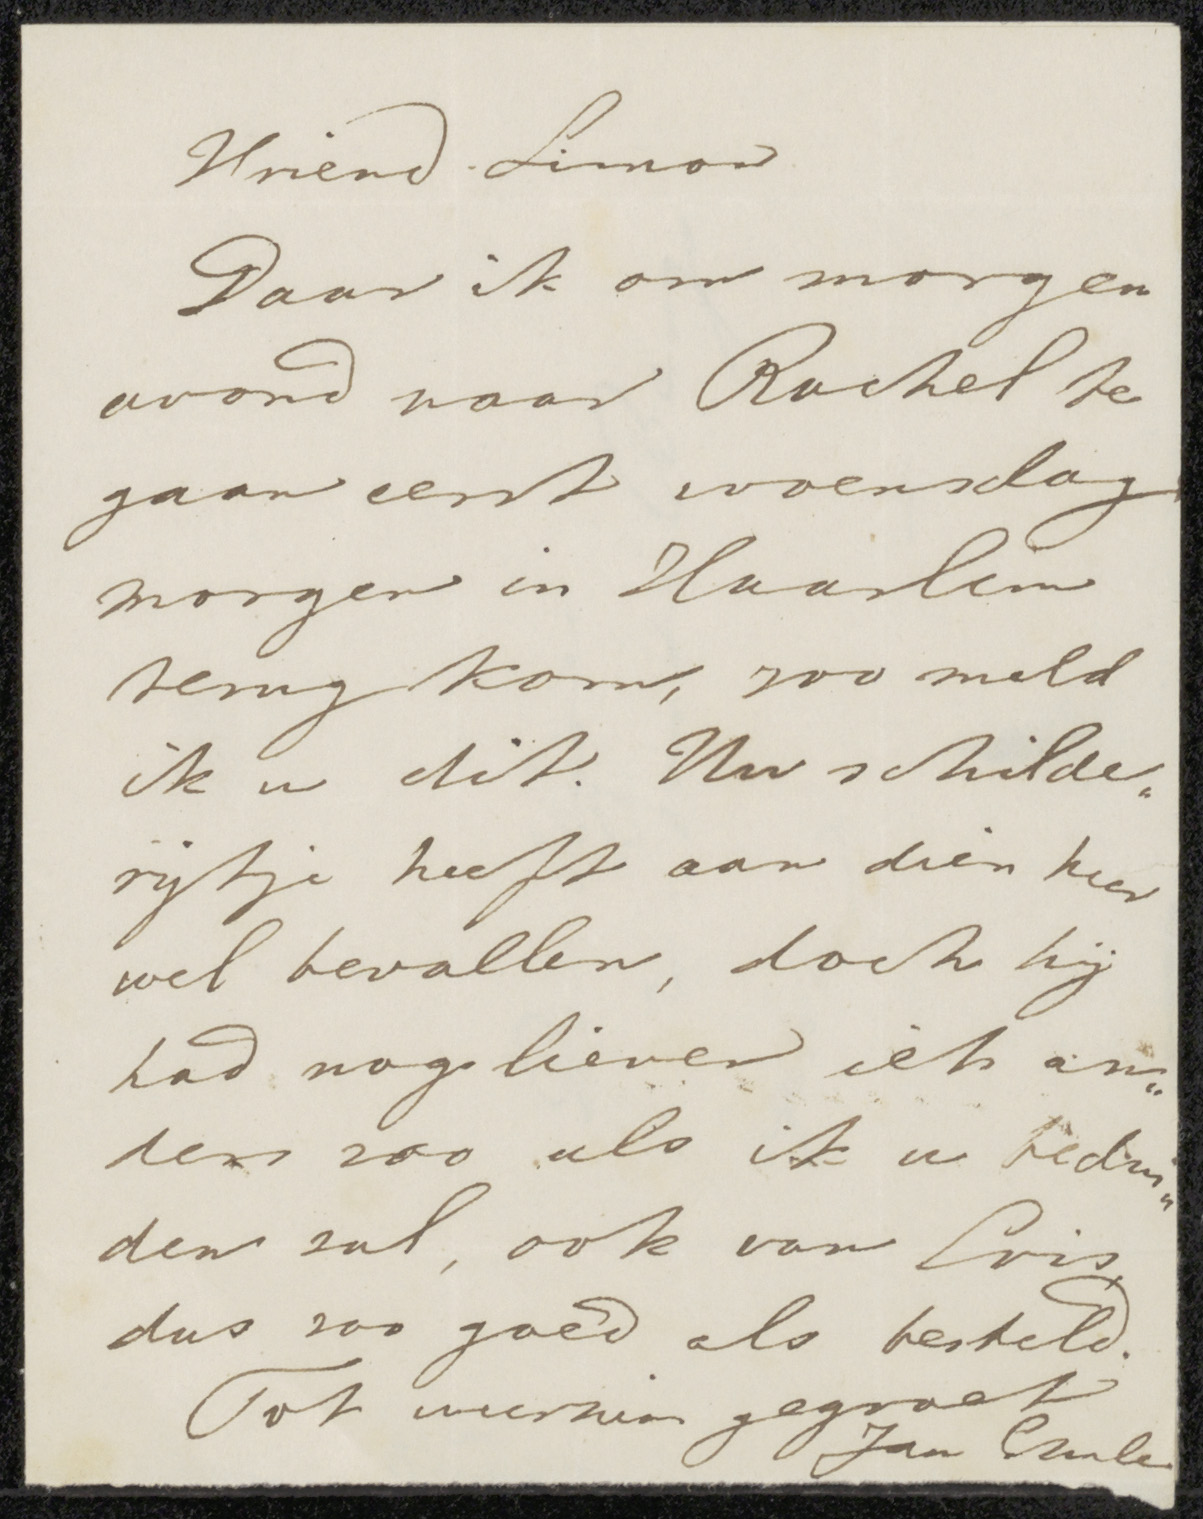 Vriend Simon
Daar ik om morgen
avond naar Rachel te
gaan eerst woensdag
morgen in Haarlem
terug kom, zoo meld
ik u dit. Uw schilde„
rijtje heeft aan dien heer
wel bevallen, doch hij
had nog liever iets an„
ders zoo als ik u bedui„
den zal, ook van
dus zoo goed als besteld.
Tot weerzien gegroet
Jan